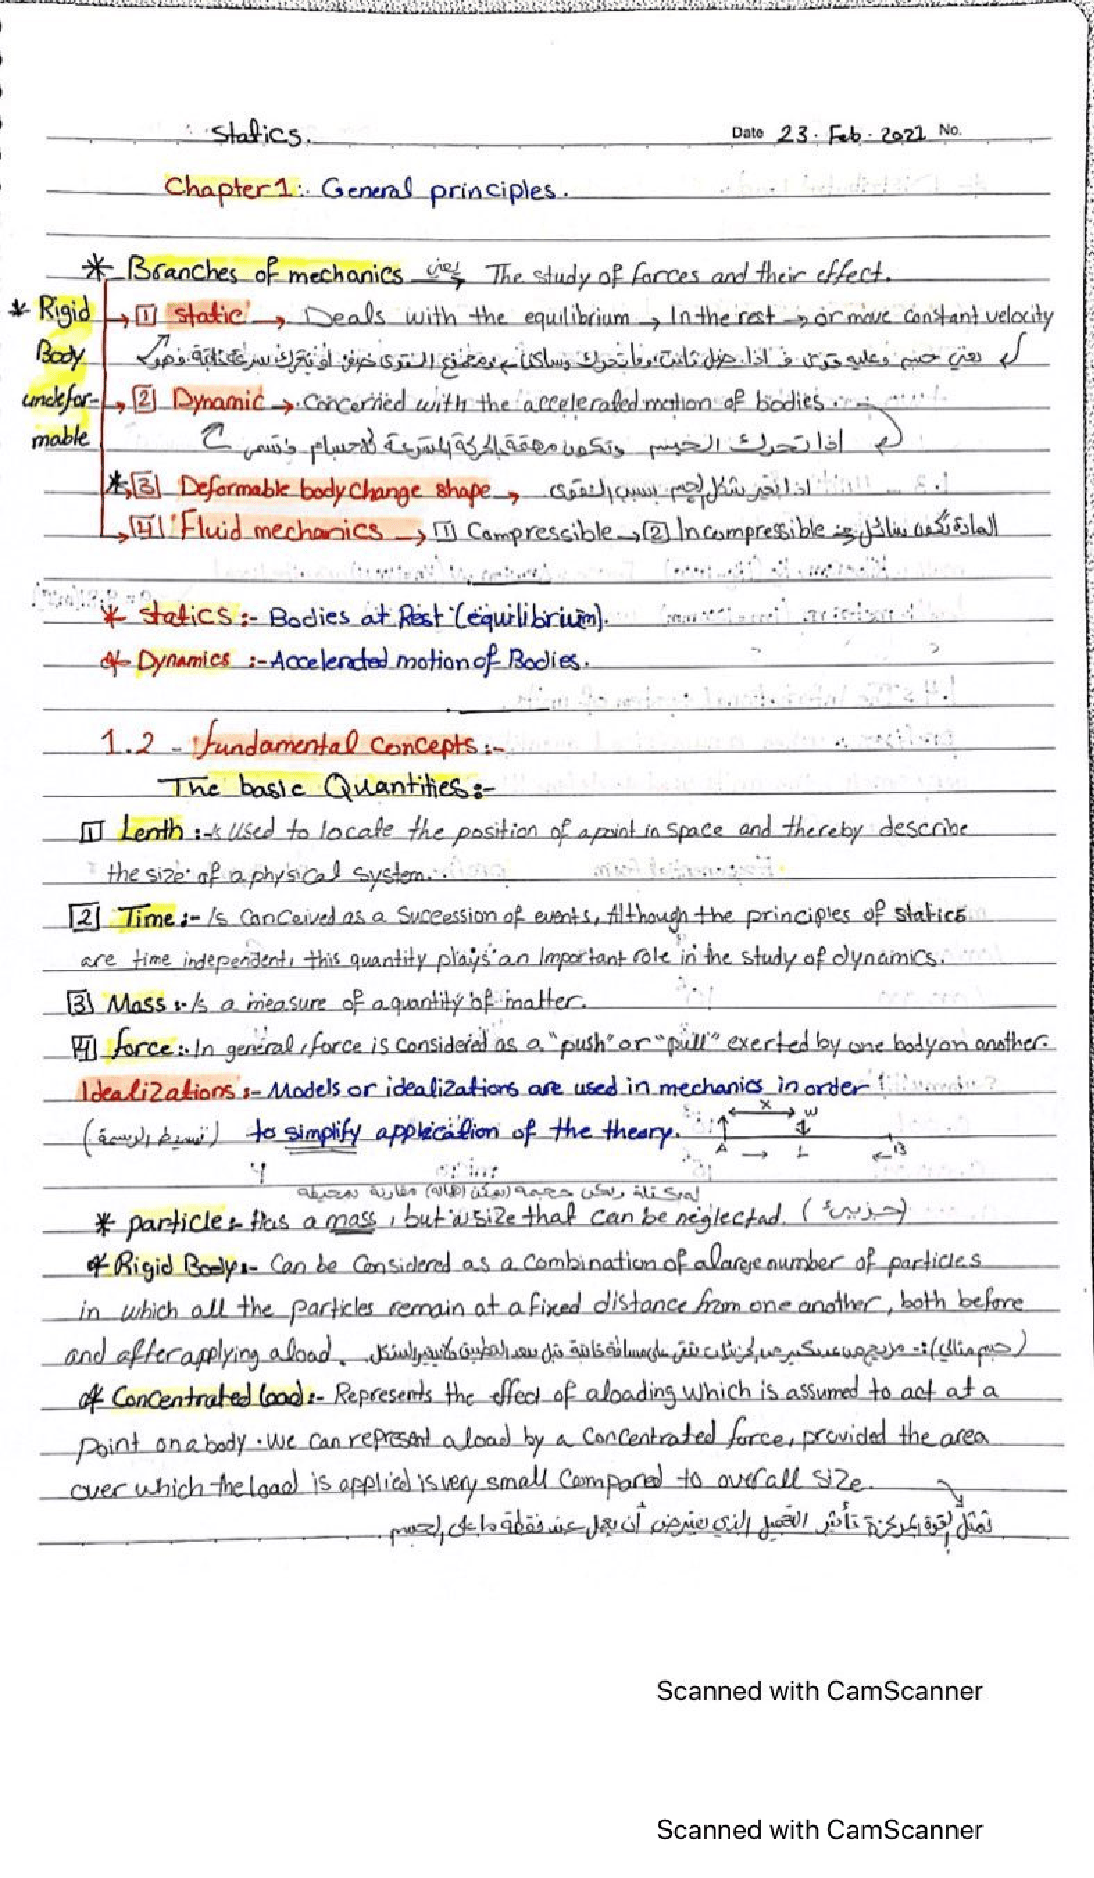 Statics. Date 23. Feb. 2021 No.
Chapter 1:. General principles.
* Branches of mechanics يعني The study of forces and their effect.
* Rigid Body undefor-mable
[1] static → Deals with the equilibrium → In the rest → or move constant velocity
يعني جسم وعليه قوى
[2] Dynamic → Concerned with the accelerated motion of bodies.
اذا تحرك الجسم وتكون
* [3] Deformable body change shape → اذا تغير شكل الجسم بسبب القوى
[4] Fluid mechanics → [1] Compressible → [2] Incompressible المادة تكون سائل
* Statics :- Bodies at Rest (equilibrium).
* Dynamics :- Accelerated motion of Bodies.
1.2 - fundamental concepts :-
The basic Quantities :-
[1] Lenth :- Is Used to locate the position of a point in space and thereby describe
the size of a physical system.
[2] Time :- Is Conceived as a Succession of events, Although the principles of statics
are time independent, this quantity plays an Important role in the study of dynamics.
[3] Mass :- Is a measure of a quantity of matter.
[4] force :. In general, force is considered as a "push" or "pull" exerted by one body on another.
Idealizations :- Models or idealizations are used in mechanics in order
(تبسيط الرسمة) to simplify application of the theory.
x w
A L B
له كتلة ولكن حجمه يمكن مقارنة بمحيطه
* particle :- Has a mass, but a size that can be neglected. (جزيء)
* Rigid Body :- Can be Considered as a Combination of a large number of particles
in which all the particles remain at a fixed distance from one another, both before
and after applying a load. (جسم مثالي) :-
* Concentrated load :- Represents the effect of a loading which is assumed to act at a
point on a body. We can represent a load by a Concentrated force, provided the area
over which the load is applied is very small Compared to overall size.
تمثل القوة المركزة تأثير التحميل الذي يفترض أن يعمل عند نقطة ما على الجسم
Scanned with CamScanner
Scanned with CamScanner